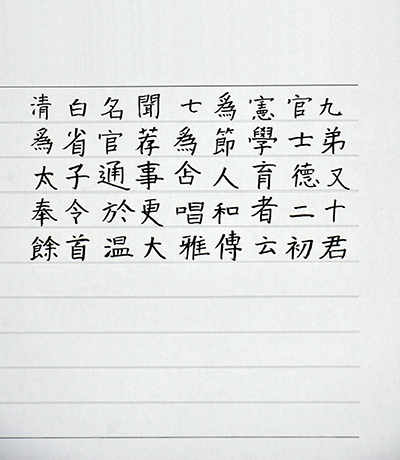 清白名聞七爲憲官九
爲省官荐爲節學士弟
太子通事舍人育德又
奉令於更唱和者二十
餘首温大雅傳云初君